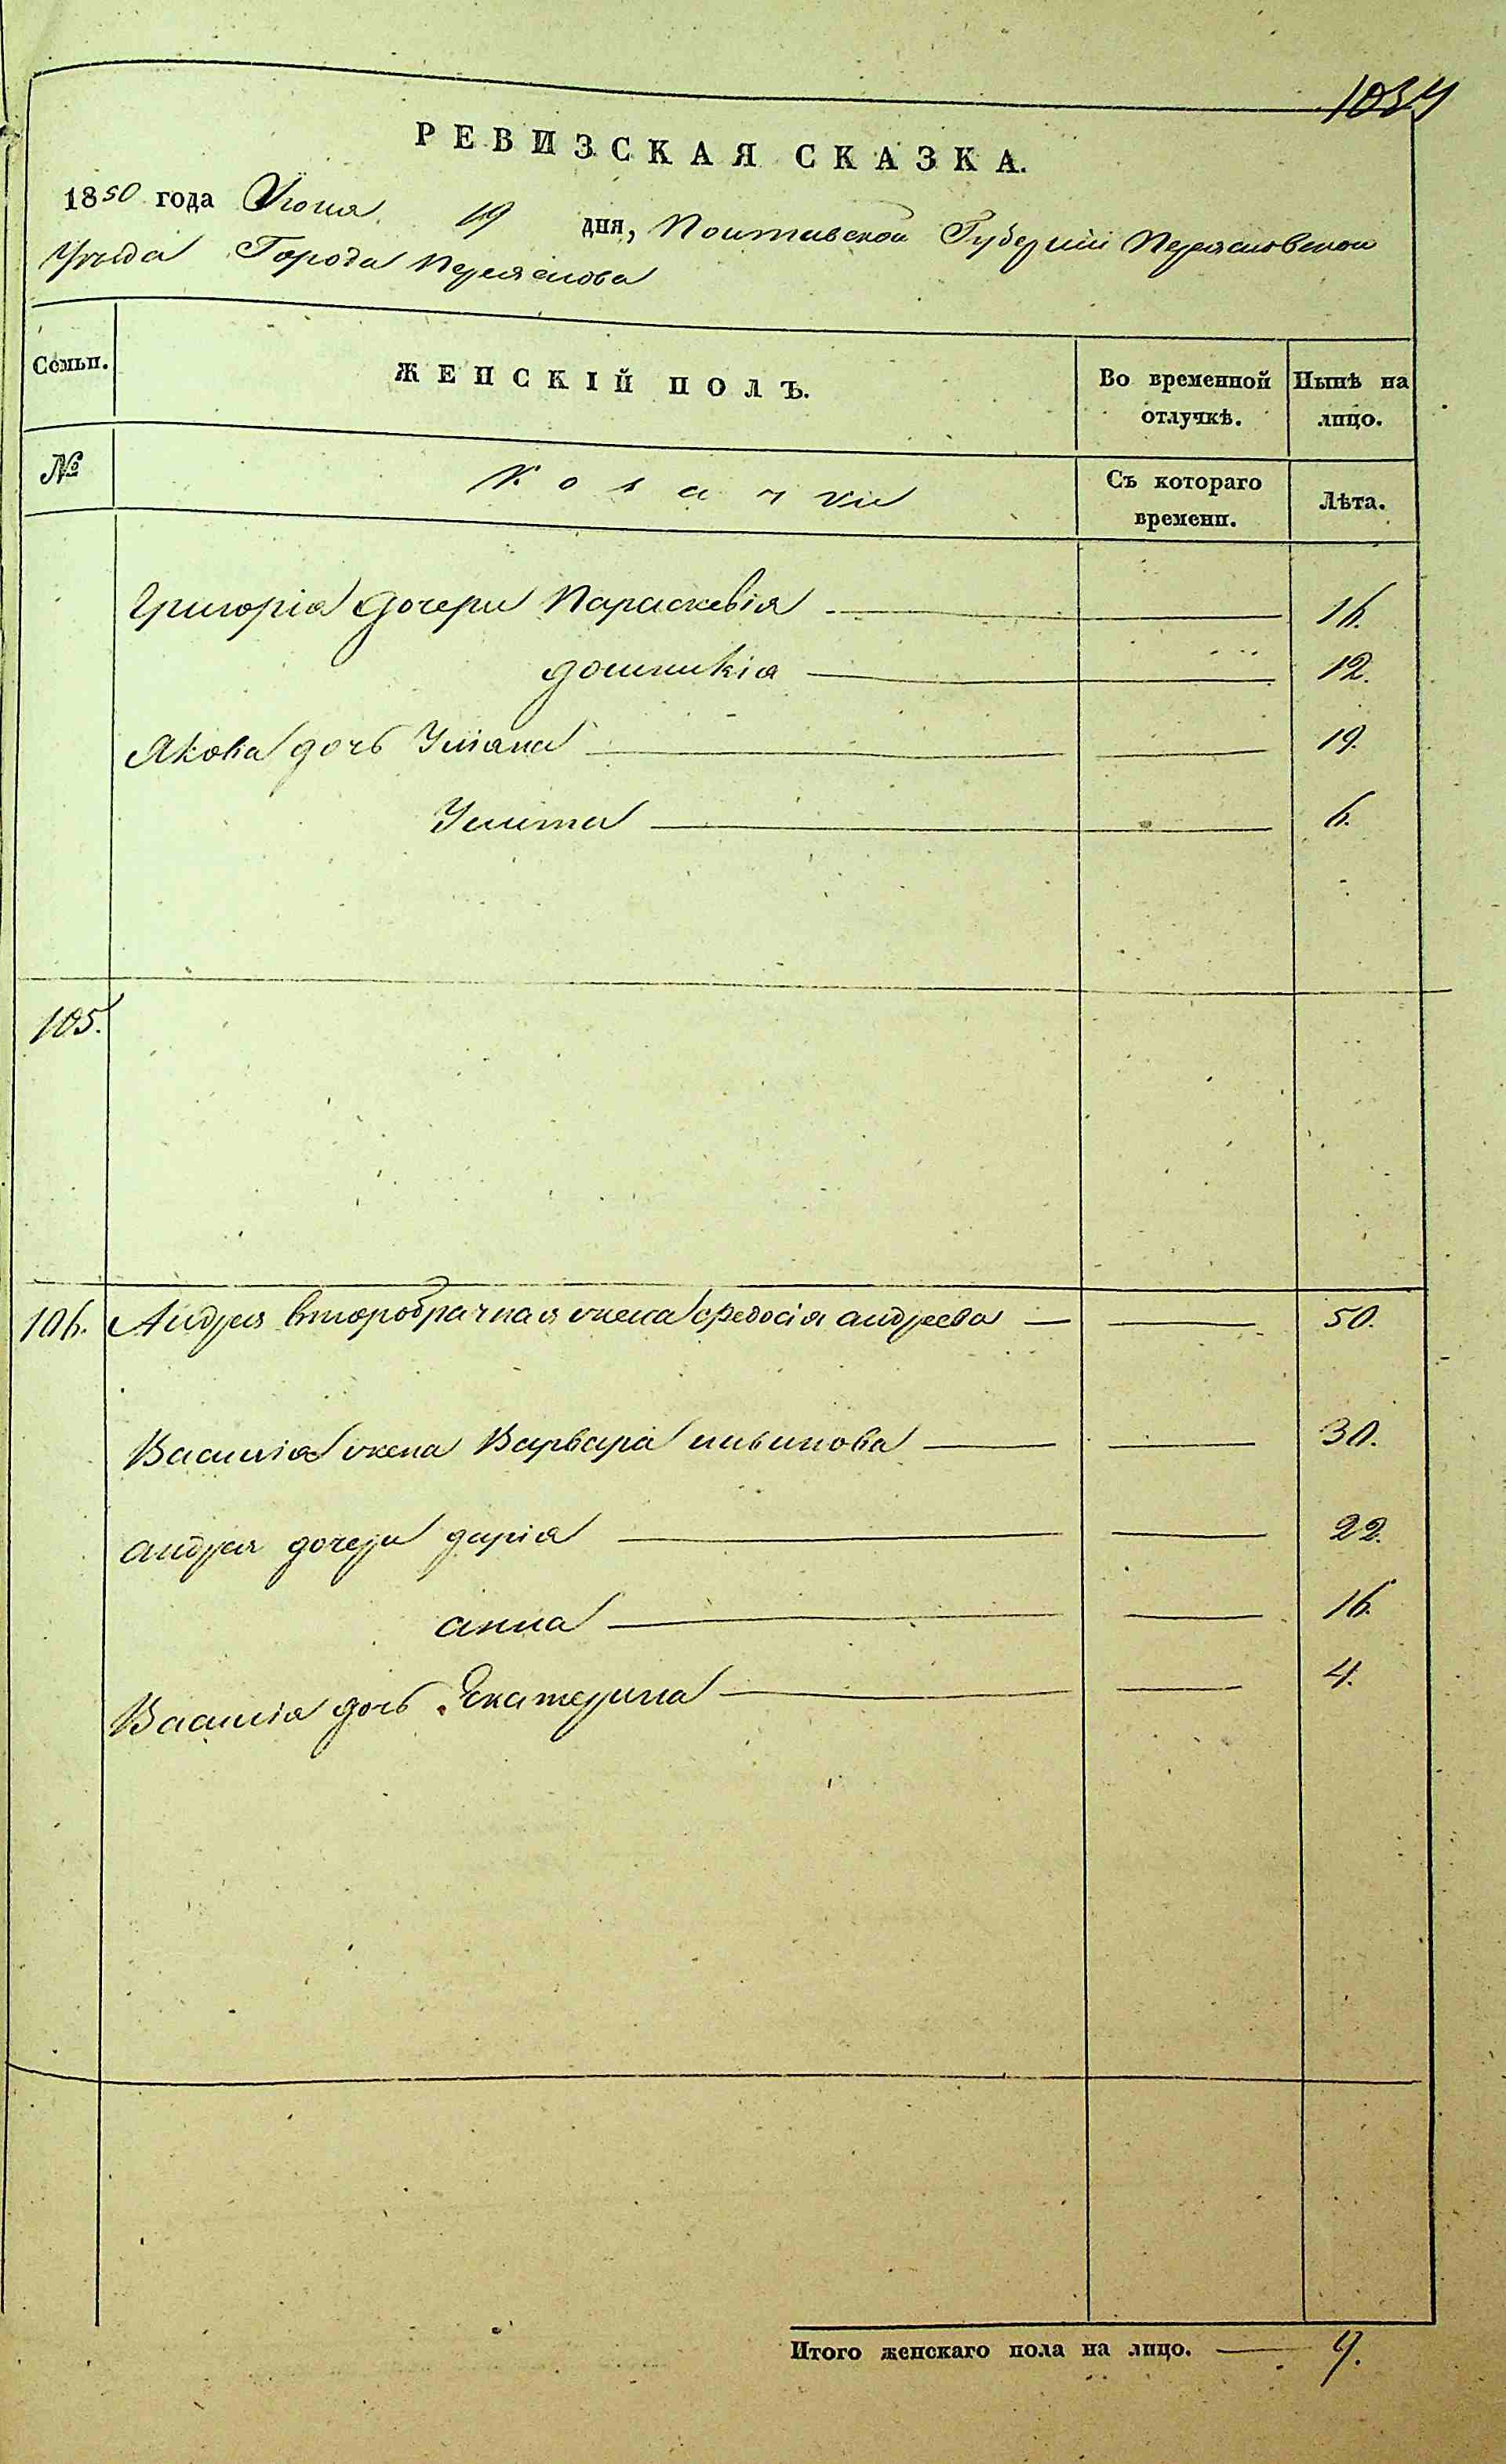 1034
РЕВИЗСКАЯ СКАЗКА.
1850 года Июня 19 дня, Полтавской Губерніи Переяславскои
Уѣзда Города Переяслова
Семьи. ЖЕНСКІЙ ПОЛЪ. Во временной отлучкѣ. Нынѣ на лицо.
№ Козачки Съ котораго времени. Лѣта.
Григорія дочери Параскевія 16.
домникія 12.
Якова дочь Уліана 19.
Улита 6.
105.
106. Андрея второбрачная жена федосія андреева 50.
Василія жена Варвара 30.
андрея дочери дарія 22.
анна 16.
Василія дочь Екатерина 4.
Итого женскаго пола на лицо. 9.